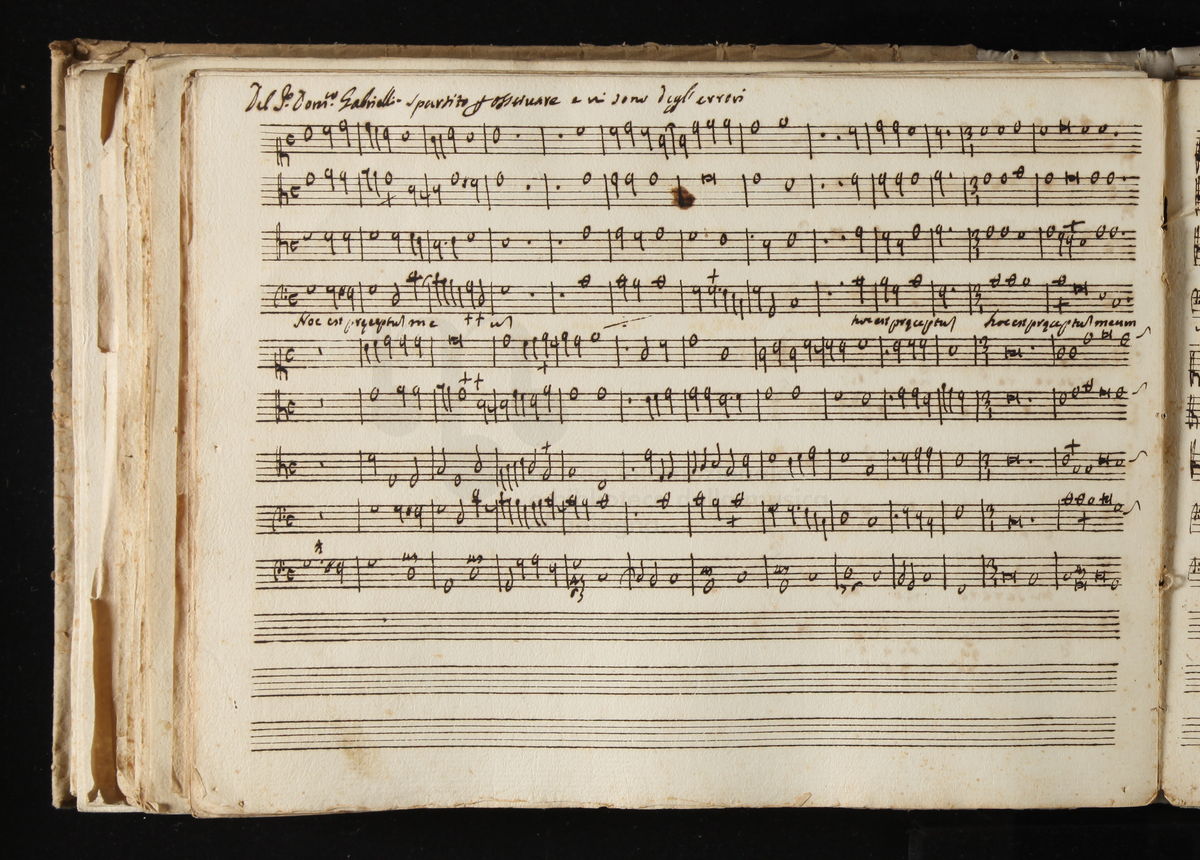 Del Sr. Domco. Gabrielli - spartito p osseruare e vi sono degl' errori
Hoc est præceptu me um hoc est præceptu hoc est præceptu meum